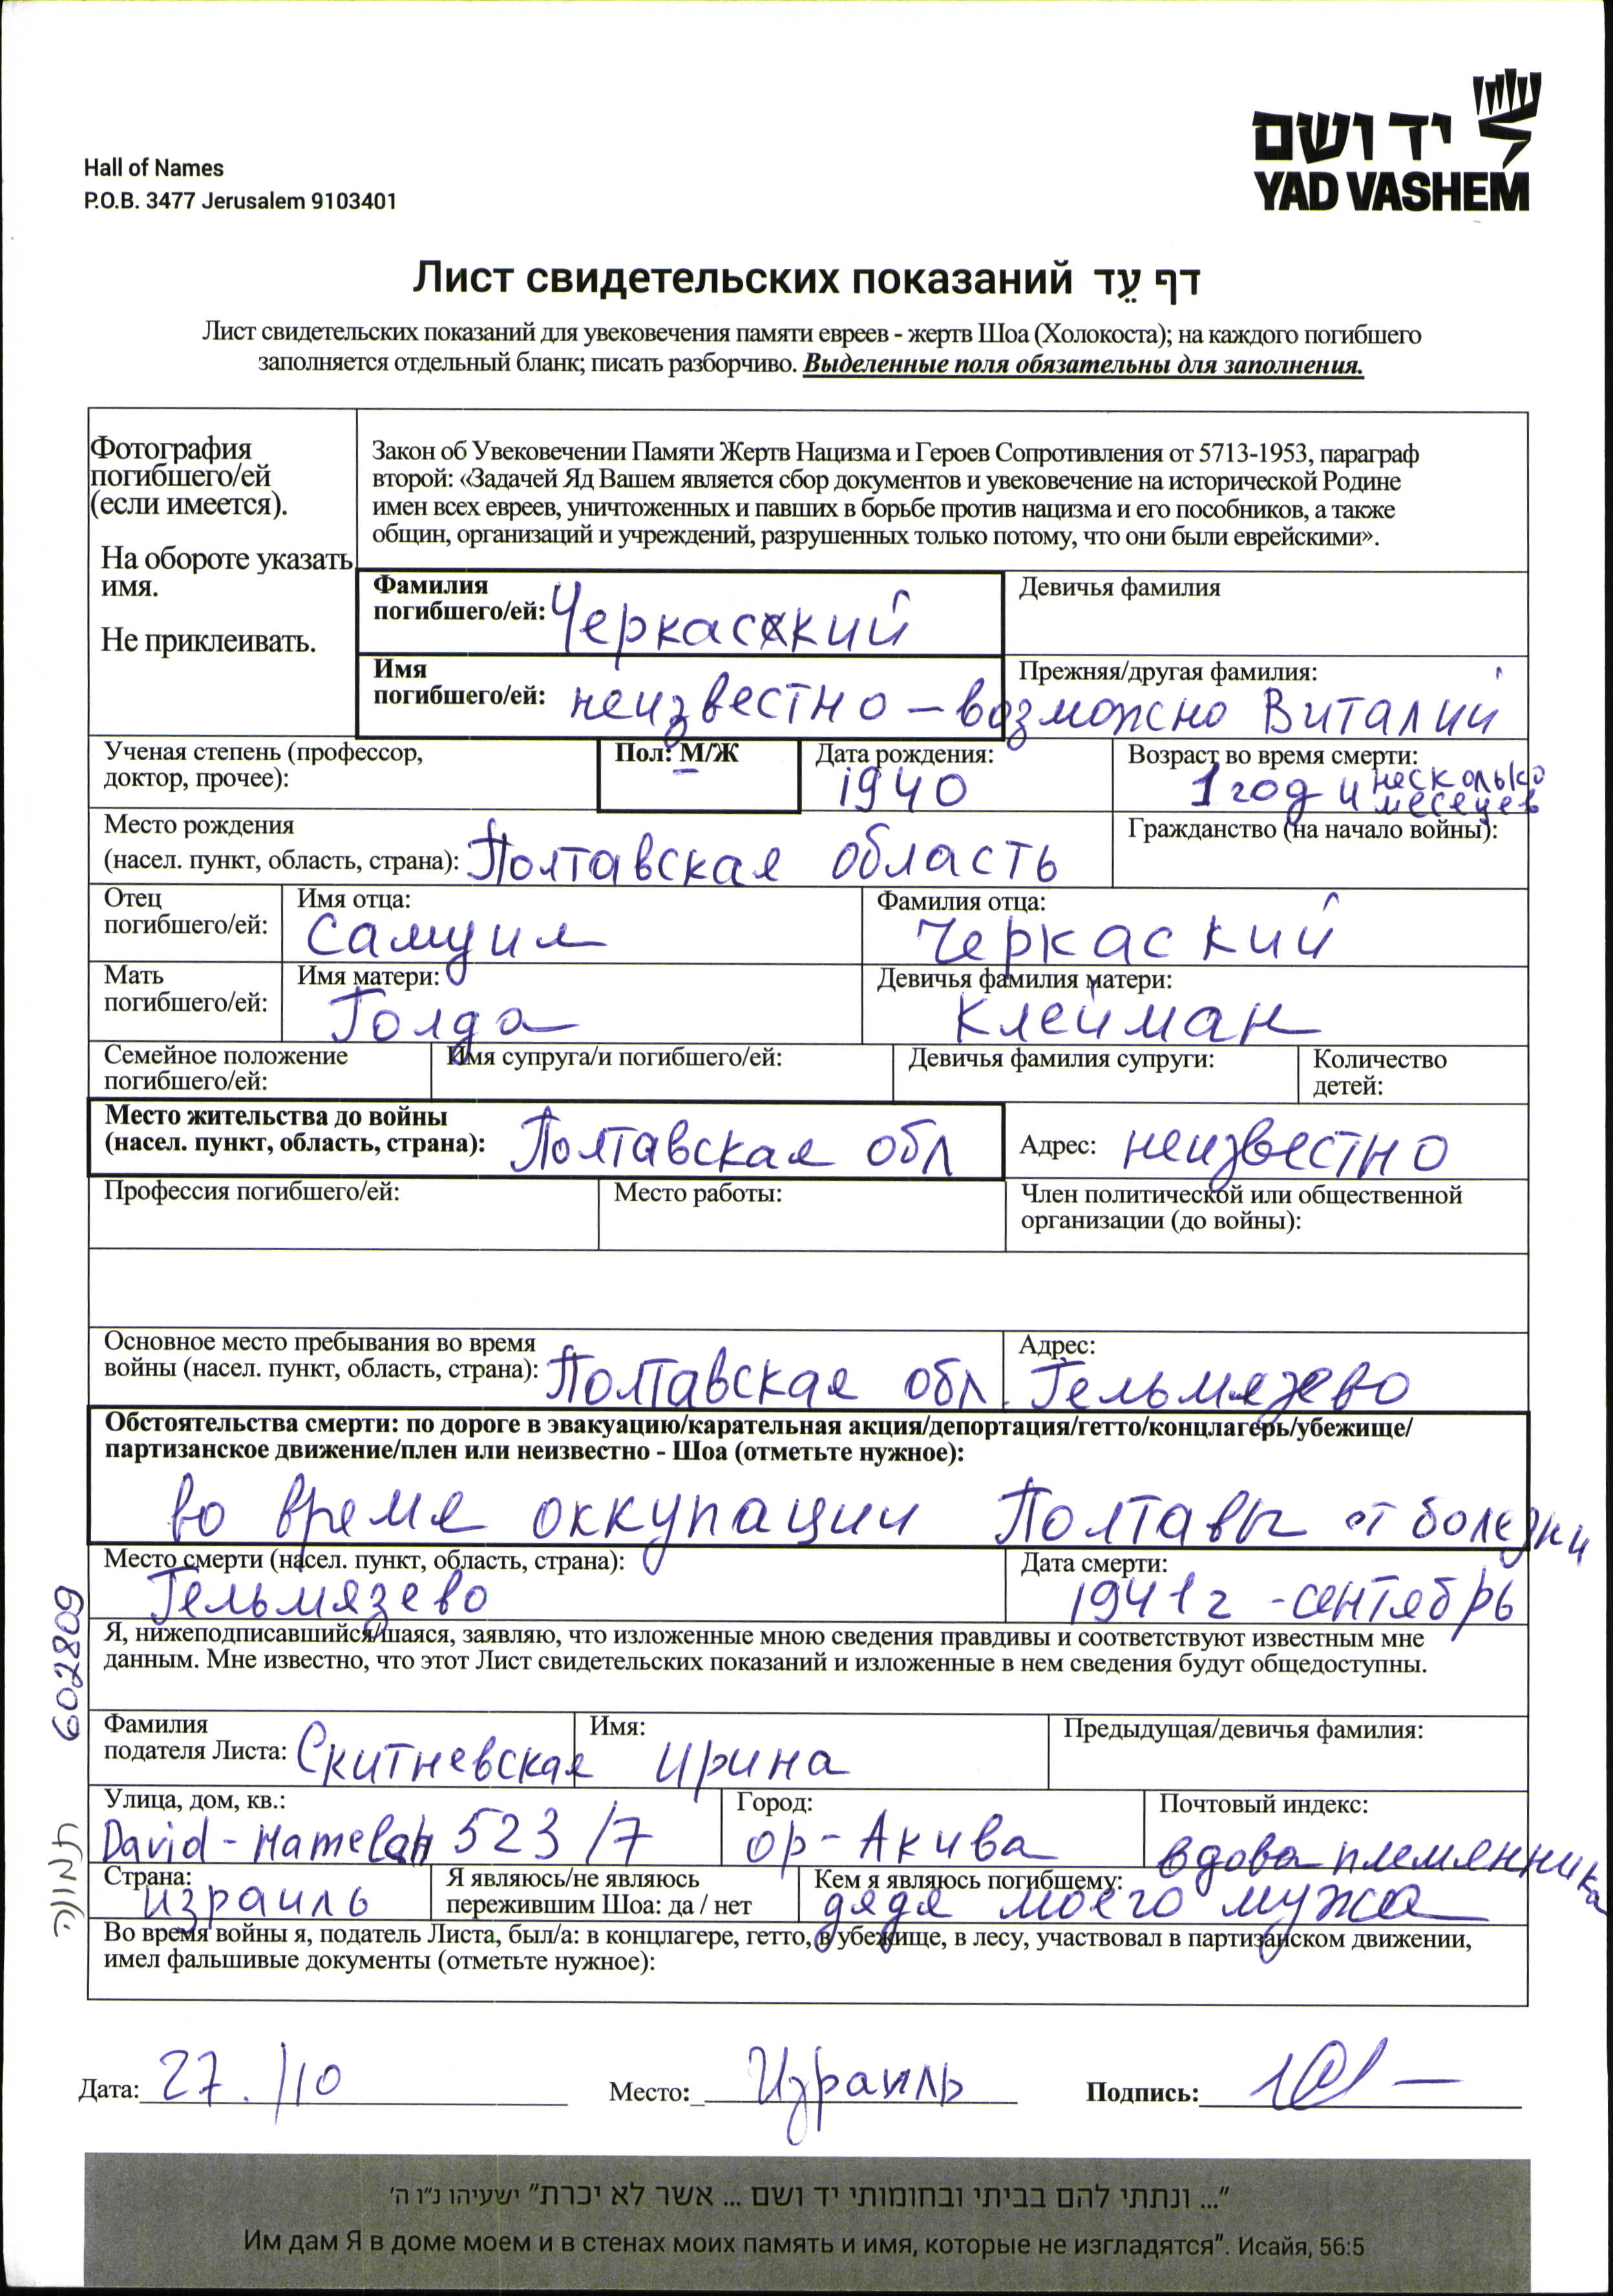 יד ושם
YAD VASHEM
Hall of Names
P.O.B. 3477 Jerusalem 9103401
Лист свидетельских показаний דף עֵד
Лист свидетельских показаний для увековечения памяти евреев - жертв Шоа (Холокоста); на каждого погибшего
заполняется отдельный бланк; писать разборчиво. Выделенные поля обязательны для заполнения.
Фотография
погибшего/ей
(если имеется).
На обороте указать
имя.
Не приклеивать.
Закон об Увековечении Памяти Жертв Нацизма и Героев Сопротивления от 5713-1953, параграф
второй: «Задачей Яд Вашем является сбор документов и увековечение на исторической Родине
имен всех евреев, уничтоженных и павших в борьбе против нацизма и его пособников, а также
общин, организаций и учреждений, разрушенных только потому, что они были еврейскими».
Фамилия
погибшего/ей: Черкаский
Девичья фамилия
Имя
погибшего/ей: неизвестно – возможно Виталий
Прежняя/другая фамилия:
Ученая степень (профессор,
доктор, прочее):
Пол: М/Ж
Дата рождения:
1940
Возраст во время смерти:
1 год и несколько
месецев
Место рождения
(насел. пункт, область, страна): Полтавская область
Гражданство (на начало войны):
Отец
погибшего/ей:
Имя отца:
Самуил
Фамилия отца:
Черкаский
Мать
погибшего/ей:
Имя матери:
Голда
Девичья фамилия матери:
Клейман
Семейное положение
погибшего/ей:
Имя супруга/и погибшего/ей:
Девичья фамилия супруги:
Количество
детей:
Место жительства до войны
(насел. пункт, область, страна): Полтавская обл
Адрес: неизвестно
Профессия погибшего/ей:
Место работы:
Член политической или общественной
организации (до войны):
Основное место пребывания во время
войны (насел. пункт, область, страна): Полтавская обл.
Адрес:
Гельмязево
Обстоятельства смерти: по дороге в эвакуацию/карательная акция/депортация/гетто/концлагерь/убежище/
партизанское движение/плен или неизвестно - Шоа (отметьте нужное):
во время оккупации Полтавы от болезни
Место смерти (насел. пункт, область, страна):
Гельмязево
Дата смерти:
1941г - сентябрь
Я, нижеподписавшийся/шаяся, заявляю, что изложенные мною сведения правдивы и соответствуют известным мне
данным. Мне известно, что этот Лист свидетельских показаний и изложенные в нем сведения будут общедоступны.
Фамилия
подателя Листа: Скитневская
Имя:
Ирина
Предыдущая/девичья фамилия:
Улица, дом, кв.:
David-Hamelah 523/7
Город:
ор-Акива
Почтовый индекс:
вдова племянника
Страна:
израиль
Я являюсь/не являюсь
пережившим Шоа: да / нет
Кем я являюсь погибшему:
дядя моего мужа
Во время войны я, податель Листа, был/а: в концлагере, гетто, в убежище, в лесу, участвовал в партизанском движении,
имел фальшивые документы (отметьте нужное):
602809
תמונה
Дата: 27./10
Место: Израиль
Подпись:
"... ונתתי להם בביתי ובחומותי יד ושם ... אשר לא יכרת" ישעיהו נ"ו ה'
Им дам Я в доме моем и в стенах моих память и имя, которые не изгладятся". Исайя, 56:5